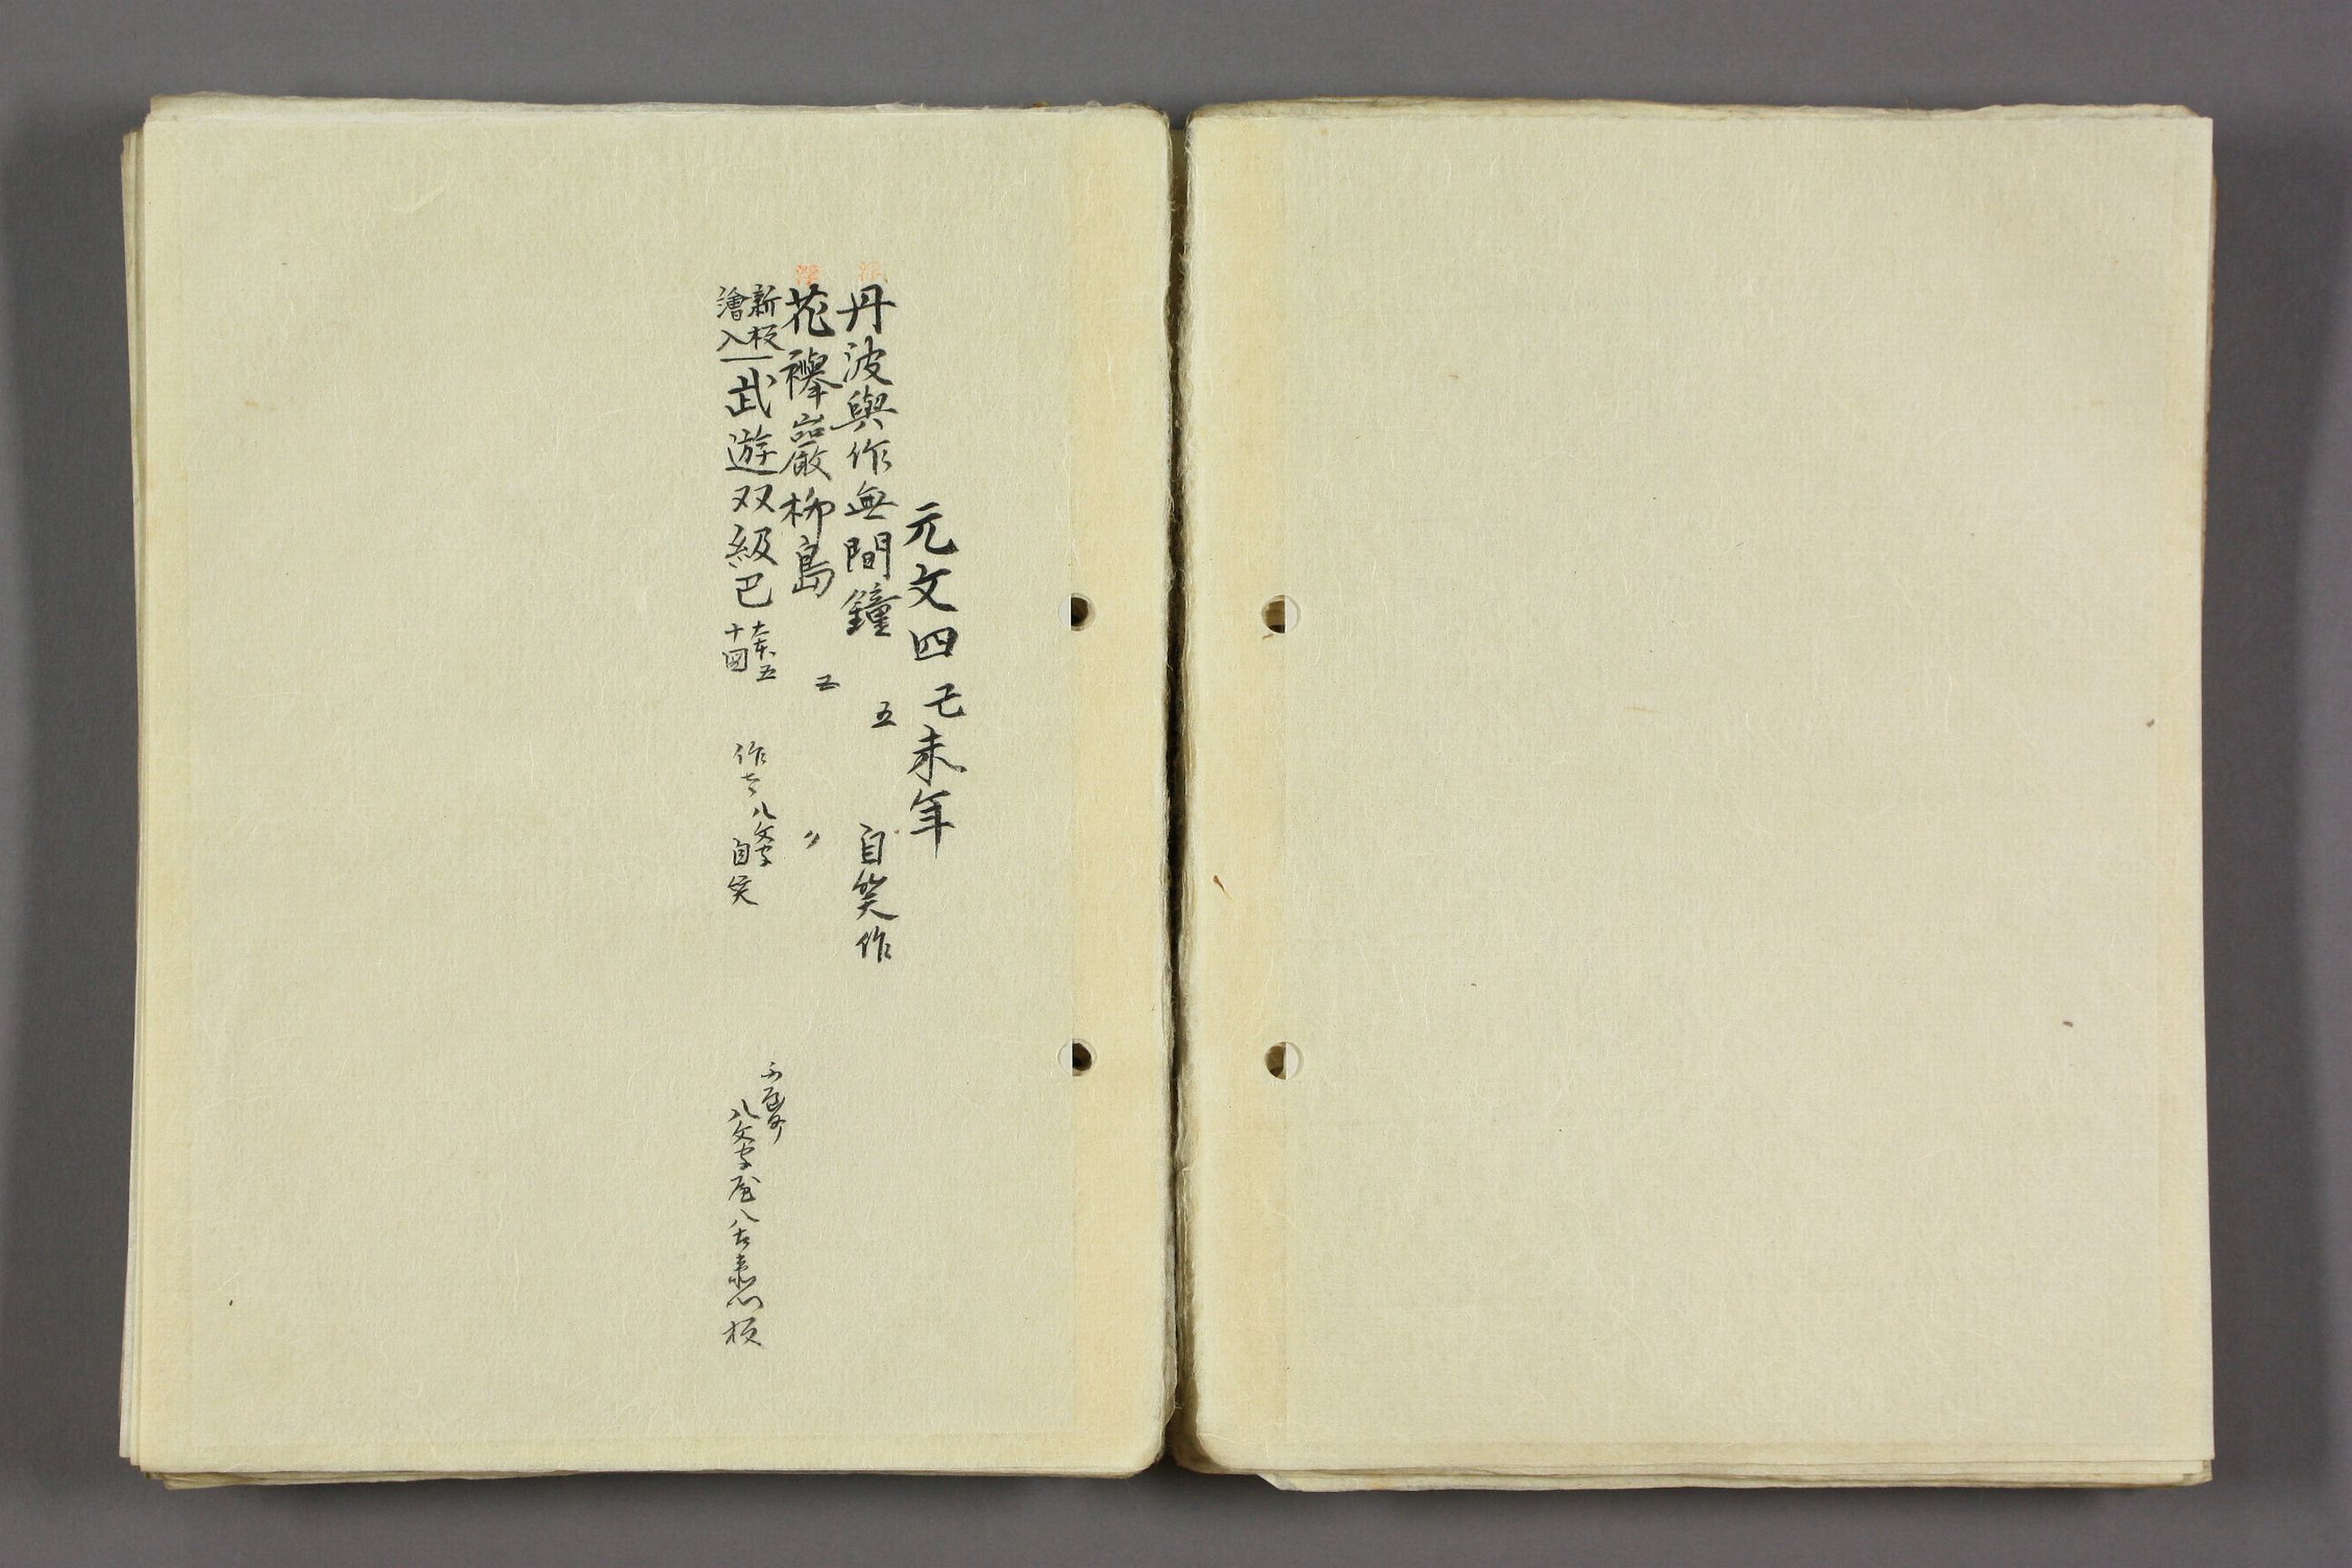 元文四己未年
丹波與作無間鐘 五 自笑作
花襷巖柳島 五 〃
新板繪入 武遊双級巴 大本五 十図 作者 八文字自笑
八文字屋八左衛門板